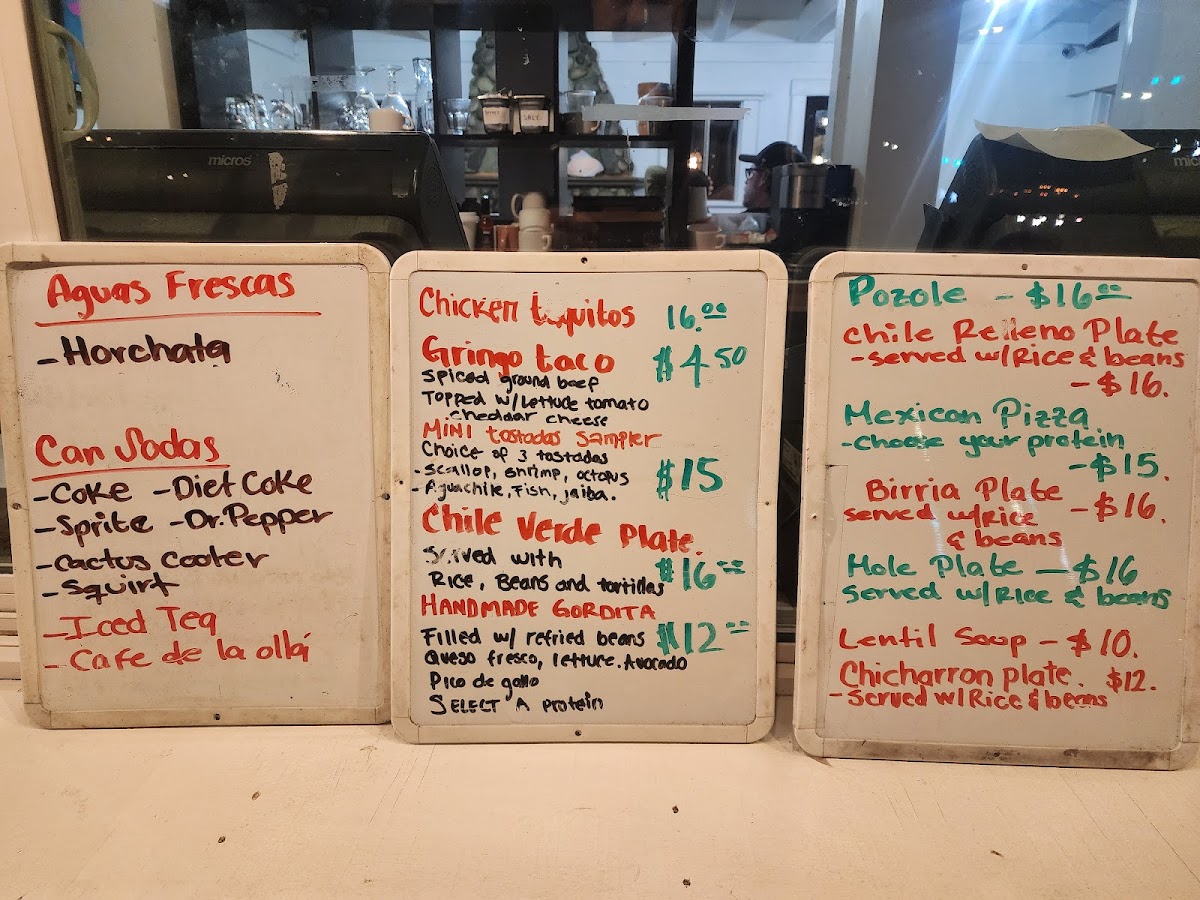 micros
SALT
mic
Aguas Frescas
- Horchata
Can Sodas
- Coke - Diet Coke
- Sprite - Dr. Pepper
- Cactus Cooler
- Squirt
- Iced Tea
- Cafe de la olla
Chicken taquitos 16.00
Gringo taco $4.50
Spiced ground beef
Topped w/Lettuce tomato
cheddar cheese
MINI tostadas Sampler
Choice of 3 tostadas
- Scallop, shrimp, octopus $15
- Aguachile, Fish, jaiba.
Chile Verde Plate.
Served with $16.00
Rice, Beans and tortillas
HANDMADE GORDITA
Filled w/ refried beans $12.00
Queso fresco, lettuce. Avocado
Pico de gallo
SELECT A protein
Pozole - $16.00
Chile Relleno Plate
- served w/Rice & beans
- $16.
Mexican Pizza
- choose your protein
- $15.
Birria Plate - $16.
served w/rice
& beans
Mole Plate - $16
Served w/ Rice & beans
Lentil Soup - $10.
Chicharron plate. $12.
- Served w/ Rice & beans